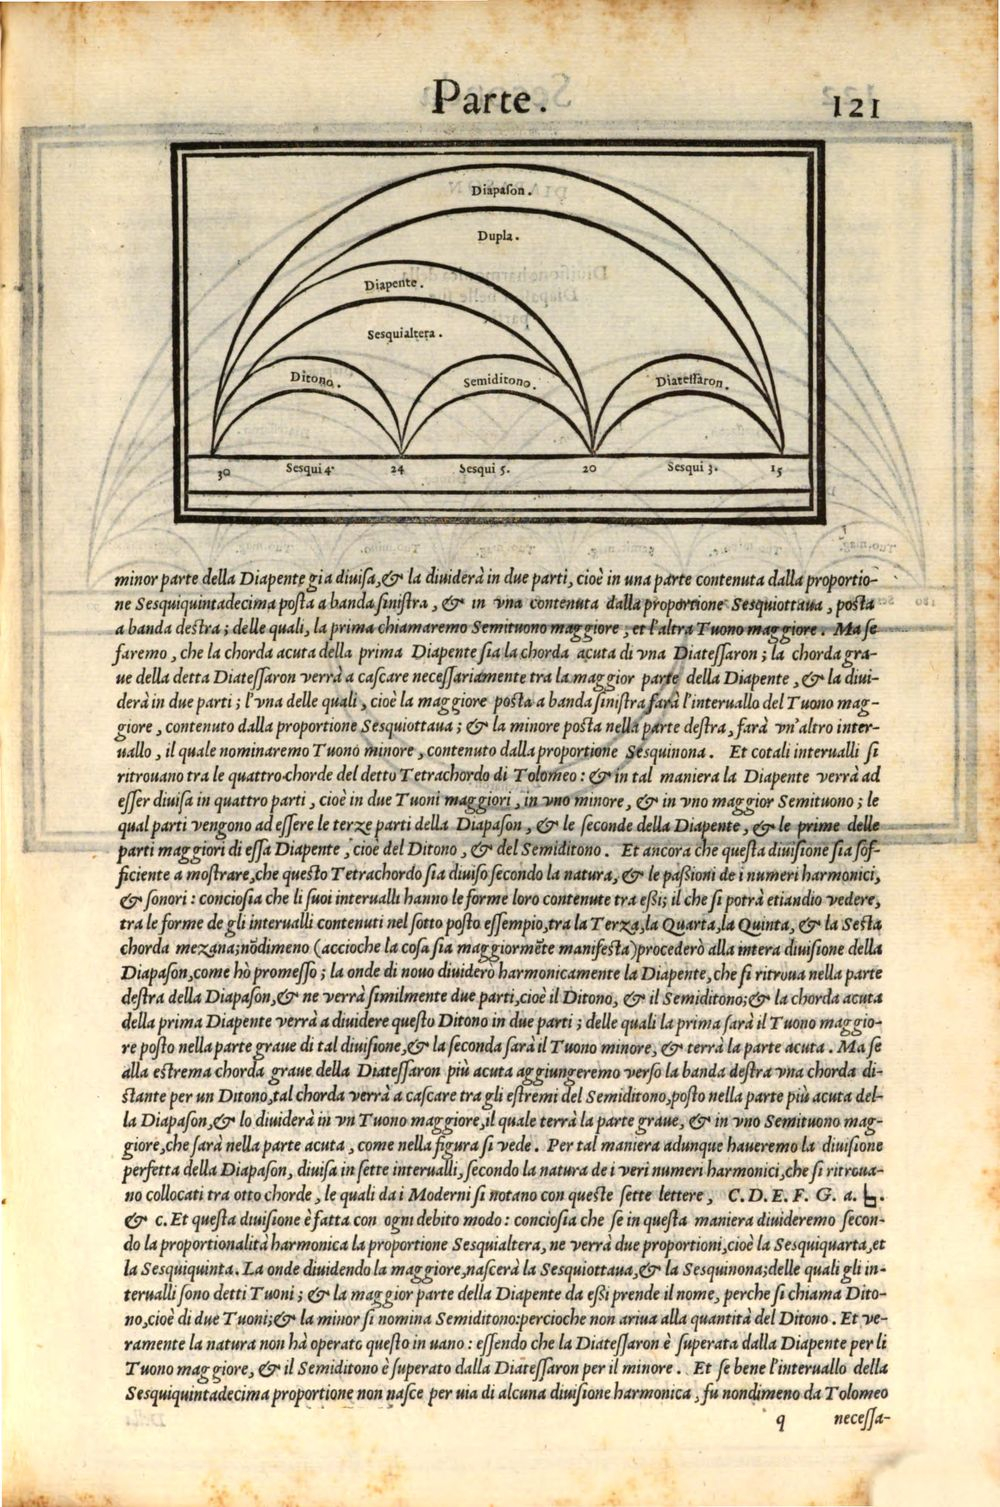 Parte.
121
Diapaſon.
Dupla.
Diapente.
Sesquialtera.
Ditono.
Semiditono.
Diateſſaron.
30 Sesqui 4. 24 Sesqui 5. 20 Sesqui 3. 15
minor parte della Diapente gia diuiſa,& la diuiderà in due parti, cioè in una parte contenuta dalla proportio-
ne Sesquiquintadecima poſta a banda ſiniſtra, & in vna contenuta dalla proportione Sesquiottaua, poſta
a banda deſtra; delle quali, la prima chiamaremo Semituono maggiore, et l'altra Tuono maggiore. Ma ſe
faremo, che la chorda acuta della prima Diapente ſia la chorda acuta di vna Diateſſaron; la chorda gra-
ue della detta Diateſſaron verrà a caſcare neceſſariamente tra la maggior parte della Diapente, & la diui-
derà in due parti; l'vna delle quali, cioè la maggiore poſta a banda ſiniſtra farà l'interuallo del Tuono mag-
giore, contenuto dalla proportione Sesquiottaua; & la minore poſta nella parte deſtra, farà vn'altro inter-
uallo, il quale nominaremo Tuono minore, contenuto dalla proportione Sesquinona. Et cotali interualli ſi
ritrouano tra le quattro chorde del detto Tetrachordo di Tolomeo: & in tal maniera la Diapente verrà ad
eſſer diuiſa in quattro parti, cioè in due Tuoni maggiori, in vno minore, & in vno maggior Semituono; le
qual parti vengono ad eſſere le terze parti della Diapaſon, & le ſeconde della Diapente, & le prime delle
parti maggiori di eſſa Diapente, cioè del Ditono, & del Semiditono. Et ancora che queſta diuiſione ſia ſof-
ficiente a moſtrare,che queſto Tetrachordo ſia diuiſo ſecondo la natura,& le paſſioni de i numeri harmonici,
& ſonori: concioſia che li ſuoi interualli hanno le forme loro contenute tra eſſi; il che ſi potrà etiandio vedere,
tra le forme de gli interualli contenuti nel ſotto poſto eſſempio,tra la Terza,la Quarta,la Quinta, & la Seſta
chorda mezana;nõdimeno (accioche la coſa ſia maggiormẽte manifeſta)procederò alla intera diuiſione della
Diapaſon,come hò promeſſo; la onde di nouo diuiderò harmonicamente la Diapente,che ſi ritroua nella parte
deſtra della Diapaſon,& ne verrà ſimilmente due parti,cioè il Ditono, & il Semiditono;& la chorda acuta
della prima Diapente verrà a diuidere queſto Ditono in due parti; delle quali la prima ſarà il Tuono maggio-
re poſto nella parte graue di tal diuiſione,& la ſeconda ſarà il Tuono minore, & terrà la parte acuta. Ma ſe
alla eſtrema chorda graue della Diateſſaron più acuta aggiungeremo verſo la banda deſtra vna chorda di-
ſtante per un Ditono,tal chorda verrà a caſcare tra gli eſtremi del Semiditono,poſto nella parte più acuta del-
la Diapaſon,& lo diuiderà in vn Tuono maggiore,il quale terrà la parte graue, & in vno Semituono mag-
giore,che ſarà nella parte acuta, come nella figura ſi vede. Per tal maniera adunque haueremo la diuiſione
perfetta della Diapaſon, diuiſa in ſette interualli,ſecondo la natura de i veri numeri harmonici,che ſi ritroua-
no collocati tra otto chorde, le quali da i Moderni ſi notano con queſte ſette lettere, C. D. E. F. G. a. ♮.
& c. Et queſta diuiſione è fatta con ogni debito modo: concioſia che ſe in queſta maniera diuideremo ſecon-
do la proportionalità harmonica la proportione Sesquialtera, ne verrà due proportioni,cioè la Sesquiquarta,et
la Sesquiquinta. La onde diuidendo la maggiore,naſcerà la Sesquiottaua,& la Sesquinona;delle quali gli in-
terualli ſono detti Tuoni; & la maggior parte della Diapente da eſſi prende il nome, perche ſi chiama Dito-
no,cioè di due Tuoni;& la minor ſi nomina Semiditono:percioche non ariua alla quantità del Ditono. Et ve-
ramente la natura non hà operato queſto in uano: eſſendo che la Diateſſaron è ſuperata dalla Diapente per li
Tuono maggiore, & il Semiditono è ſuperato dalla Diateſſaron per il minore. Et ſe bene l'interuallo della
Sesquiquintadecima proportione non naſce per uia di alcuna diuiſione harmonica, fu nondimeno da Tolomeo
q neceſſa-